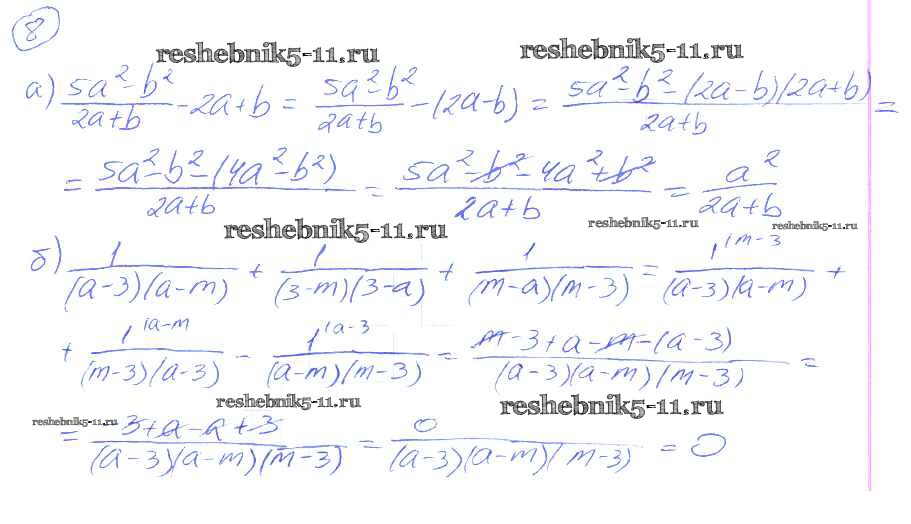 8
reshebnik5-11.ru reshebnik5-11.ru
а) (5a² - b²)/(2a+b) - 2a + b = (5a² - b²)/(2a+b) - (2a-b) = (5a² - b² - (2a-b)(2a+b))/(2a+b) =
= (5a² - b² - (4a² - b²))/(2a+b) = (5a² - b² - 4a² + b²)/(2a+b) = a²/(2a+b)
reshebnik5-11.ru reshebnik5-11.ru reshebnik5-11.ru
б) 1/((a-3)(a-m)) + 1/((3-m)(3-a)) + 1/((m-a)(m-3)) = 1^(m-3/((a-3)(a-m)) +
+ 1^(a-m/((m-3)(a-3)) - 1^(a-3/((a-m)(m-3)) = (m-3+a-m-(a-3))/((a-3)(a-m)(m-3)) =
reshebnik5-11.ru reshebnik5-11.ru reshebnik5-11.ru
= (3+a-a+3)/((a-3)(a-m)(m-3)) = 0/((a-3)(a-m)(m-3)) = 0